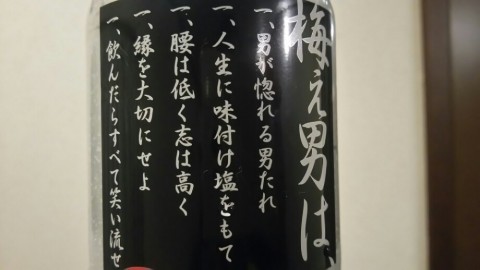 梅ぇ男は、
一、男が惚れる男たれ
一、人生に味付け塩をもて
一、腰は低く志は高く
一、縁を大切にせよ
一、飲んだらすべて笑い流せ